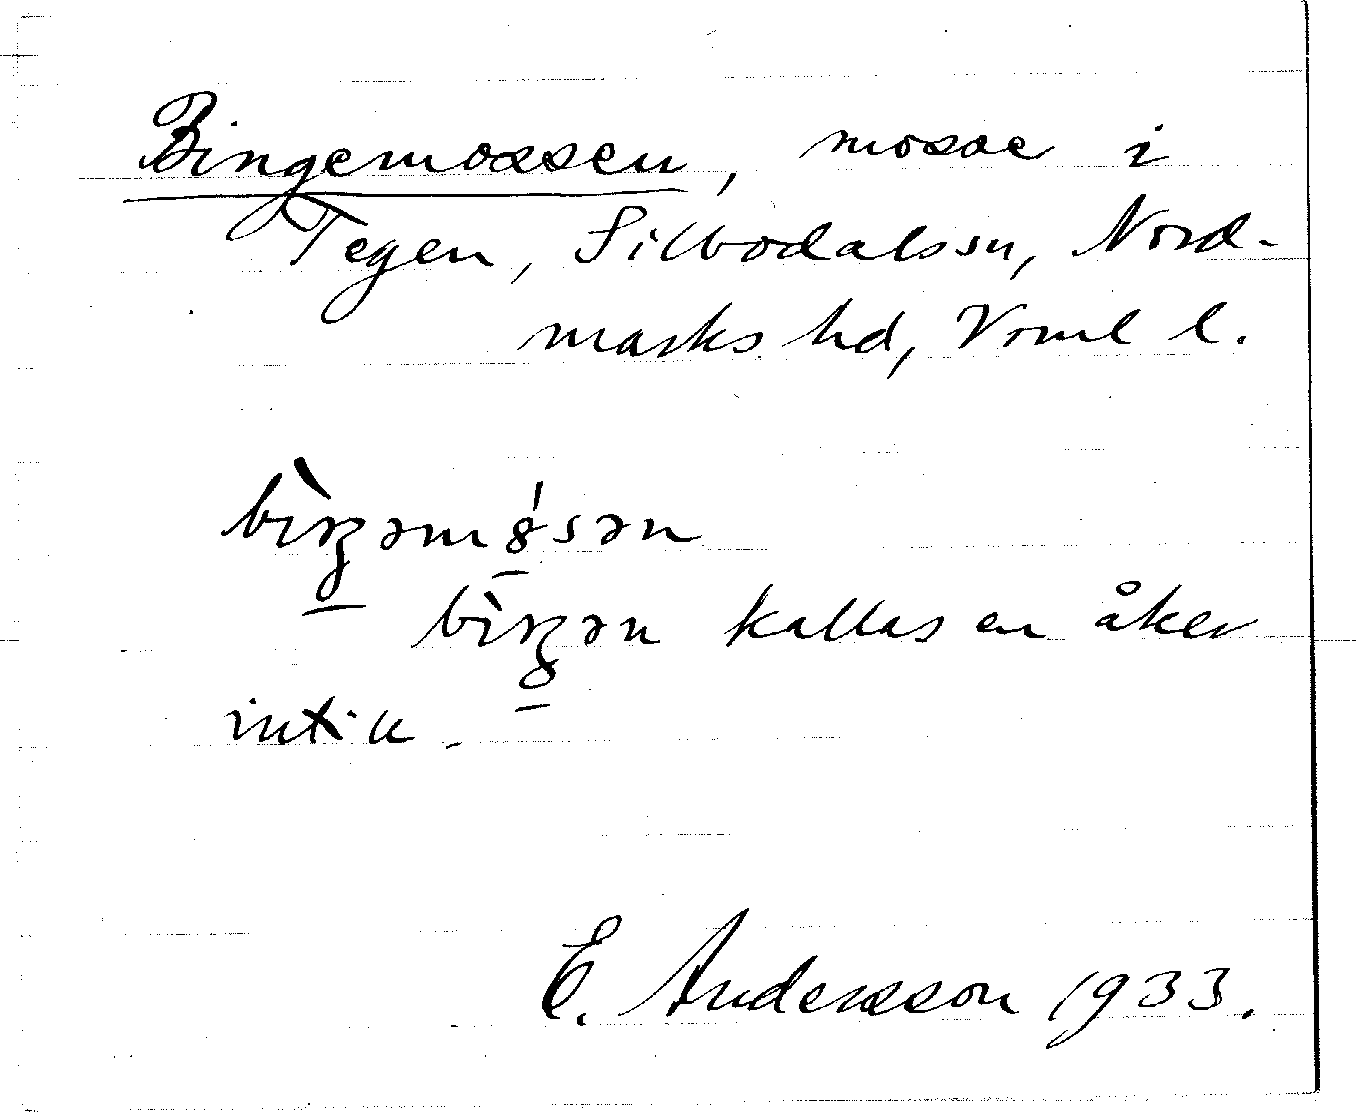 Bingemossen, mosse i
Tegen, Silbodals sn, Nord-
marks hd, Vrml l.
bìŋəmȣ́sən
bìŋən kallas en åker
intill.
E. Andersson 1933.